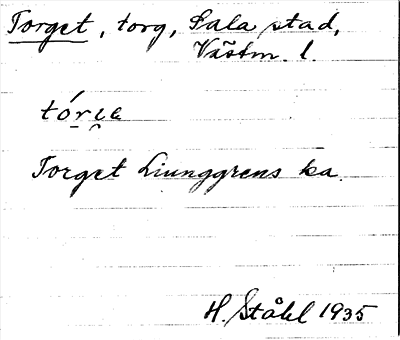 Torget, torg, Sala stad,
Västm. l.
Torget Liunggrens ka.
H. Ståhl 1935